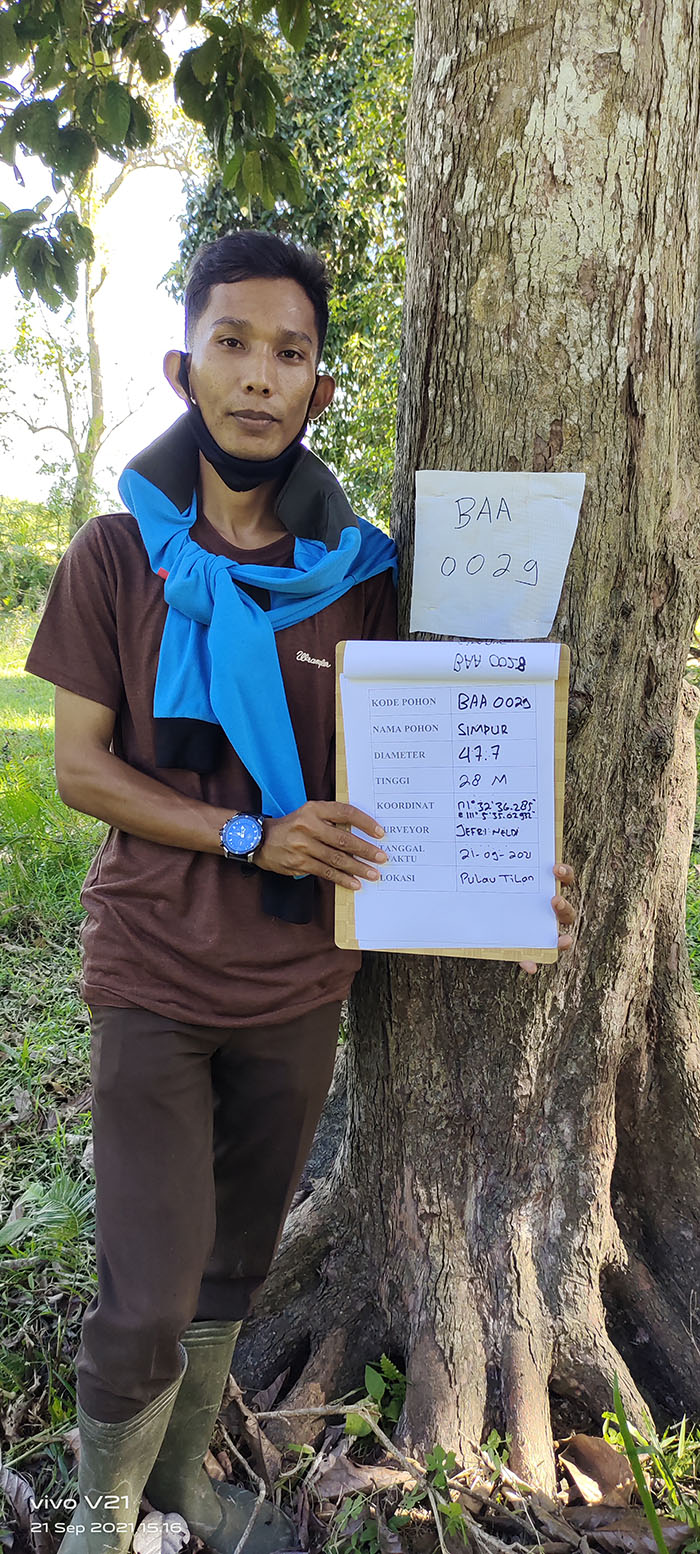 BAA
0029
BAA 0028
KODE POHON BAA 0029
NAMA POHON SIMPUR
DIAMETER 47.7
TINGGI 28 M
KOORDINAT N1° 32' 36.285"
E 111° 5' 35.02992"
SURVEYOR JEFRI NELDI
TANGGAL
WAKTU 21-09-2021
LOKASI Pulau Tilan
Wrangler
vivo V21
21 Sep 2021 15.16